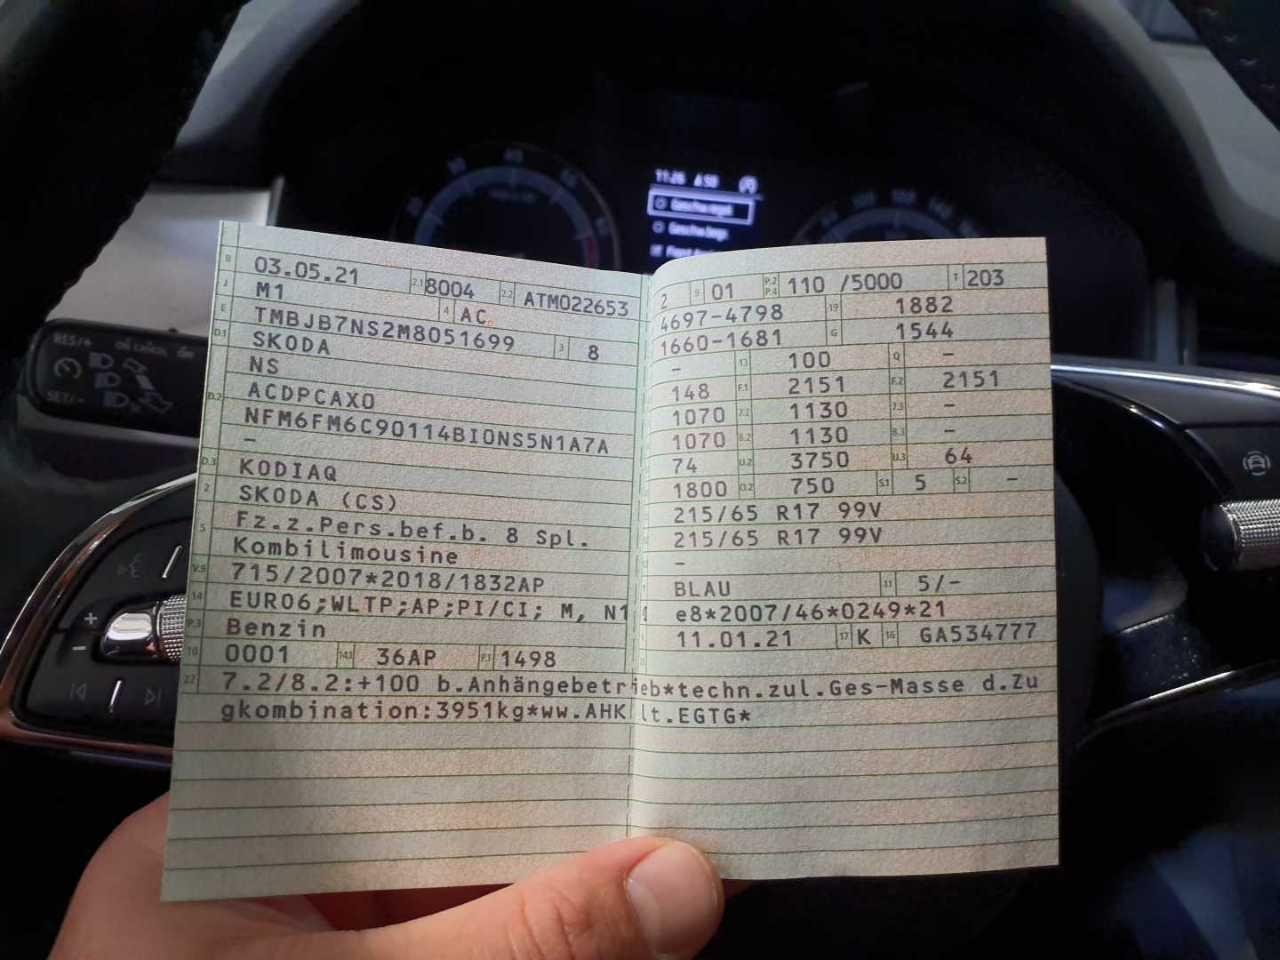 B 03.05.21 2.1 8004 2.2 ATM022653
J M1 4 AC
E TMBJB7NS2M8051699 3 8
D.1 SKODA
NS
D.2 ACDPCAX0
NFM6FM6C90114BIONS5N1A7A
-
D.3 KODIAQ
2 SKODA (CS)
5 Fz.z.Pers.bef.b. 8 Spl.
Kombilimousine
V.9 715/2007*2018/1832AP
14 EURO6;WLTP;AP;PI/CI; M, N1
P.3 Benzin
10 0001 14.1 36AP P.1 1498
22 7.2/8.2:+100 b.Anhängebetrieb*techn.zul.Ges-Masse d.Zu
gkombination:3951kg*ww.AHK lt.EGTG*
2 9 01 P.2 P.4 110 /5000 T 203
4697-4798 19 1882
1660-1681 G 1544
- 13 100 Q -
148 F.1 2151 F.2 2151
1070 7.2 1130 7.3 -
1070 8.2 1130 8.3 -
74 U.2 3750 U.3 64
1800 O.2 750 S.1 5 S.2 -
215/65 R17 99V
215/65 R17 99V
-
BLAU 11 5/-
e8*2007/46*0249*21
11.01.21 17 K 16 GA534777
11:26
RES/+
SET/-